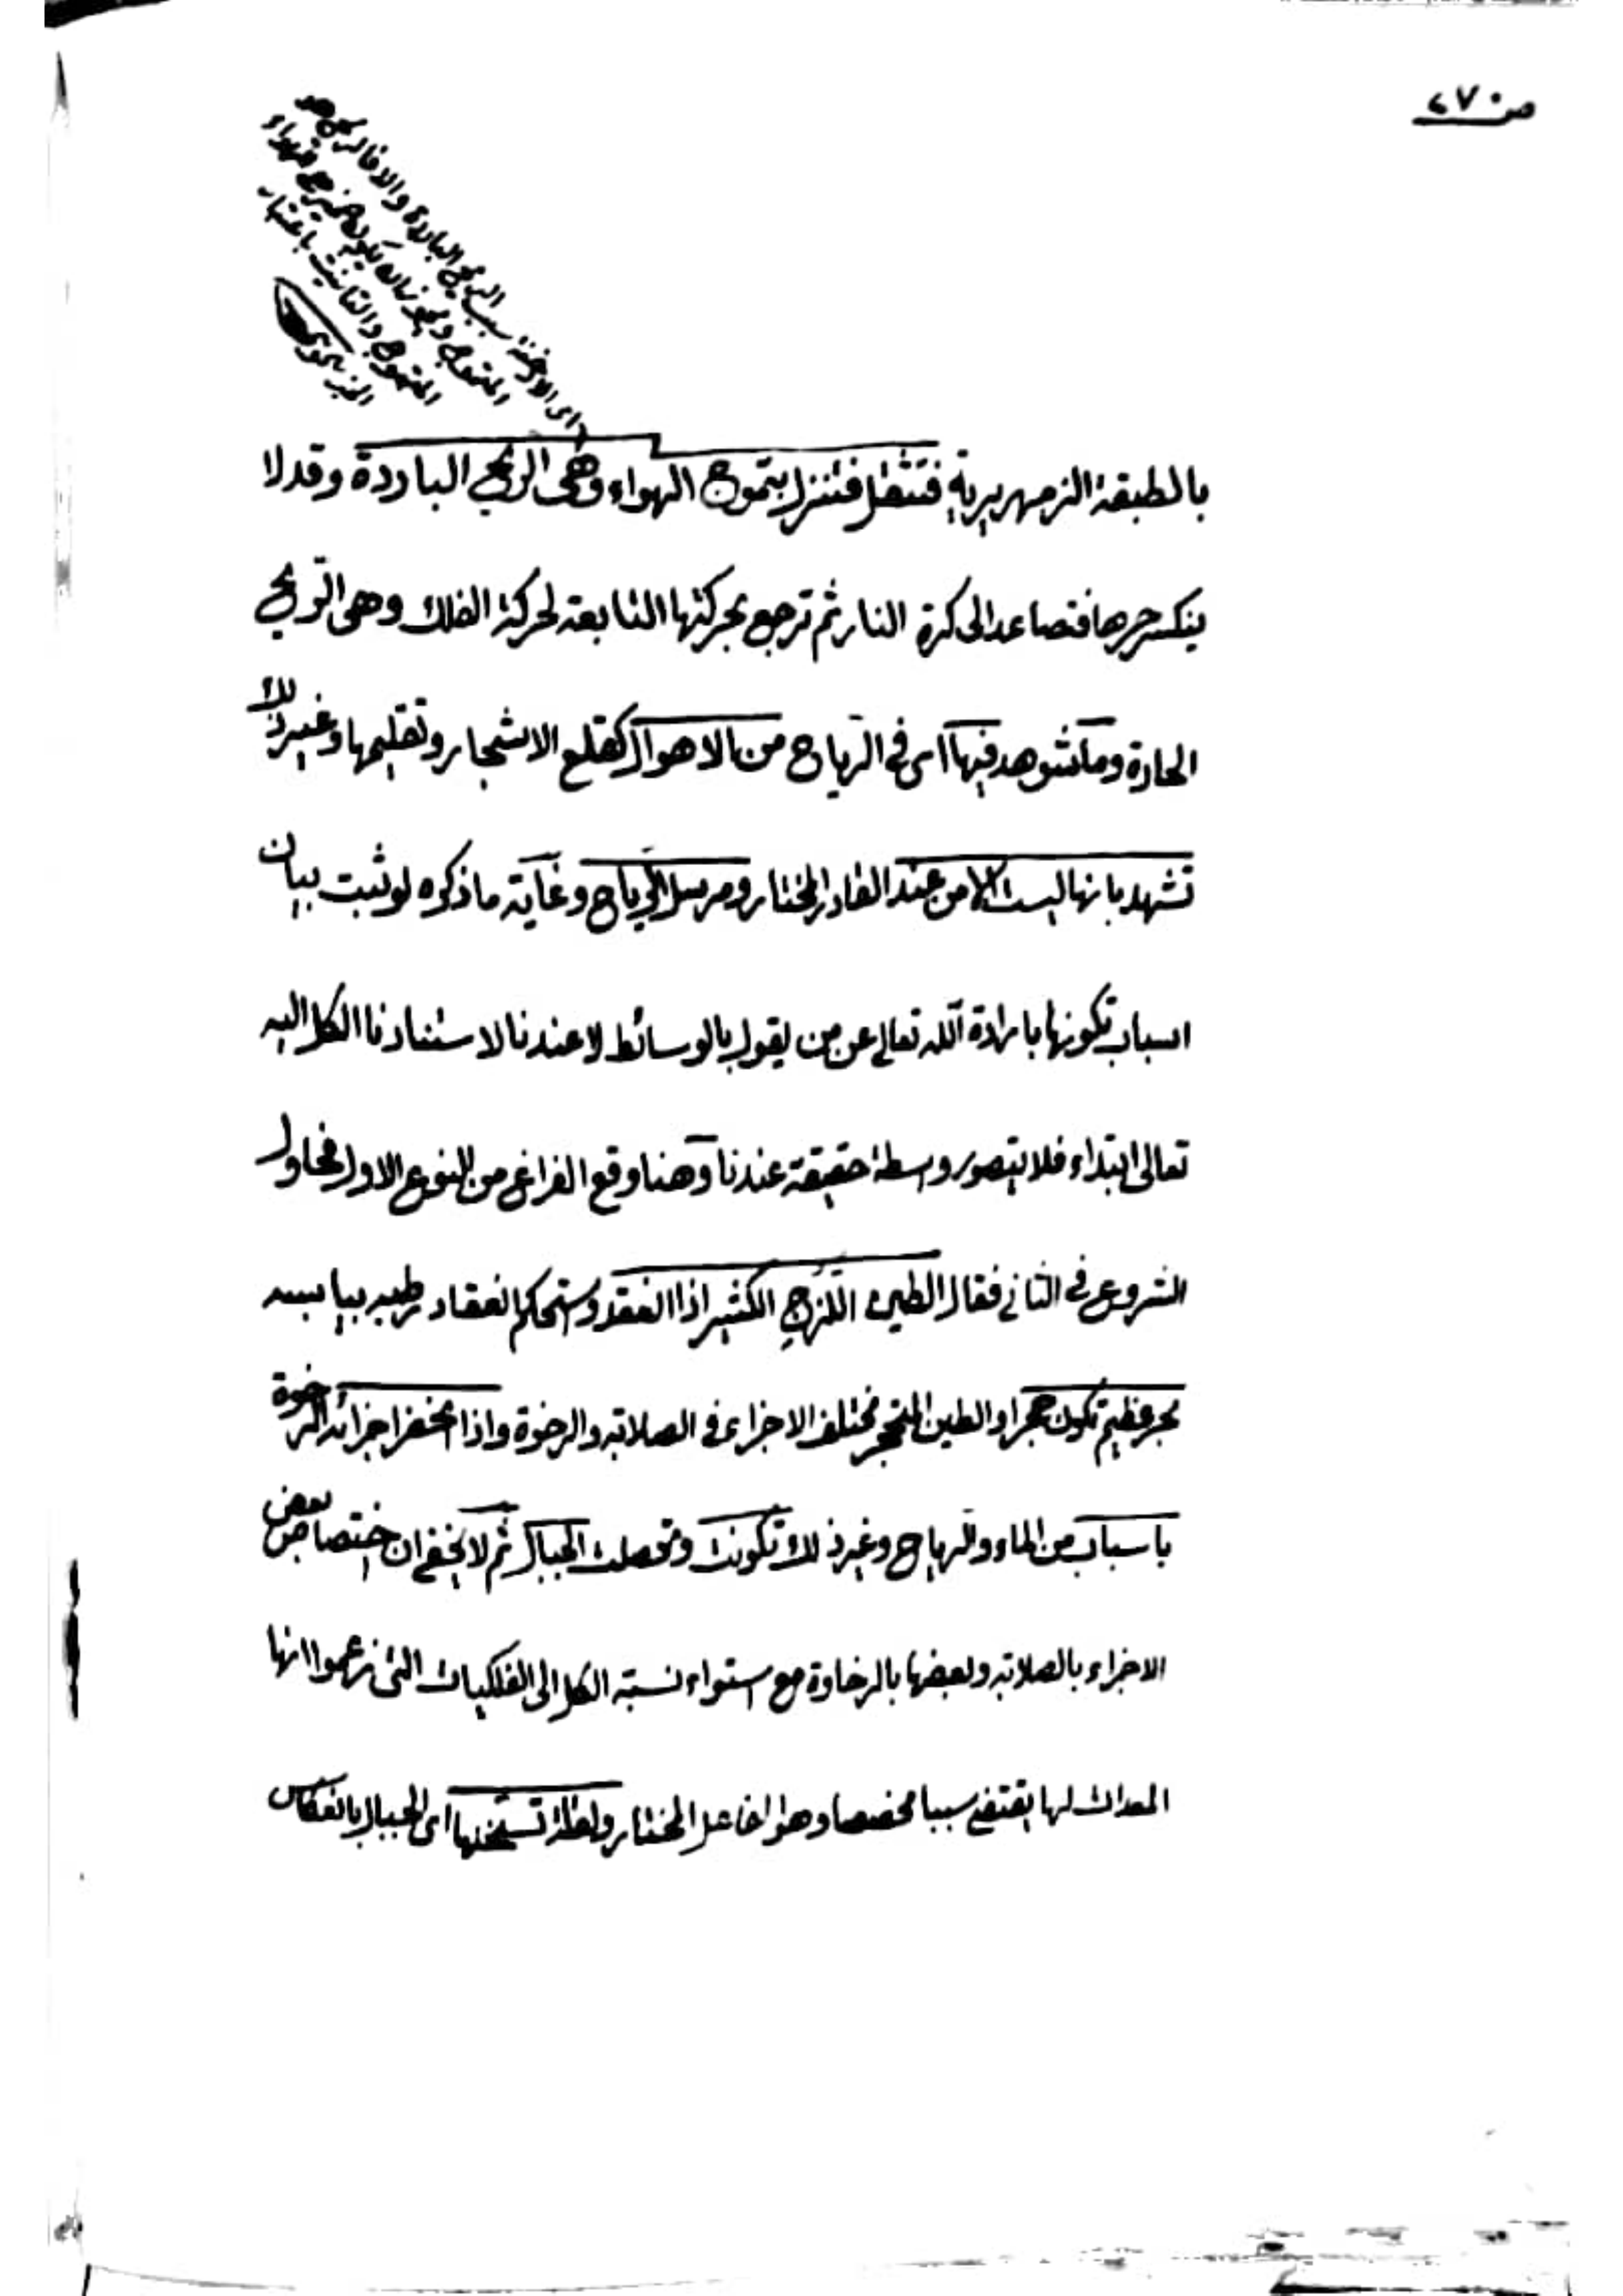 ص ٢٧٠
اى الادخنة سبب الريح الباردة والا فالريح هو
المتموج ويجوز انه يكون ضمير هى فهواء
المتموج والتانيث باعتبار
الخبر
بالطبقة الزمهريرية فتثقل فتنزل بتموج الهواء وهى الريح الباردة وقد لا
ينكسر حرها فتصاعد الى كرة النار ثم ترجع بحركتها التابعة لحركة الفلك وهى الريح
الحارة وما تشوهد فيها اى فى الرياح من الاهوال كقلع الاشجار وتقليبها وغير ذلك
تشهد بانها ليست الا من عند القادر المختار ومرسل الرياح وغاية ما ذكروه لو ثبت بيان
اسباب تكونها بارادة الله تعالى عن من يقول بالوسائط لا عندنا لاستنادنا الكل اليه
تعالى ابتداء فلا يتصور واسطة حقيقة عندنا وهنا وقع الفراغ من النوع الاول فحاول
الشروع فى الثانى فقال الطين اللزج الكثير اذا انعقد واستحكم انعقاد رطبه بيابسه
بحر عظيم تكون حجرا والطين المتحجر مختلف الاجزاء فى الصلابة والرخوة واذا انحفر اجزائه الرخوة
باسباب من الماء والرياح وغير ذلك تكونت وتحصلت الجبال ثم لا يخفى ان اختصاص بعض
الاجزاء بالصلابة وبعضها بالرخاوة مع استواء نسبة الكل الى الفلكيات التى زعموا انها
المعدات لها يقتضى سببا مخصصا وهو الفاعل المختار ولقلة تسخنها اى الجبال بانعكاس